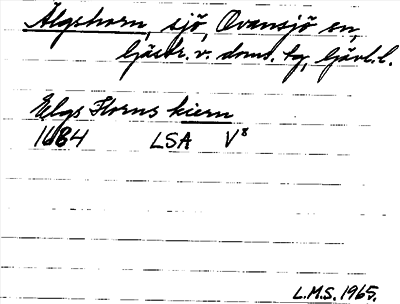 Älgshorn, sjö, Ovansjö sn,
Gästr. v. doms. tg, Gävl. l.
Elgs Horns kiern
1684 LSA V⁸
L.M.S. 1965.